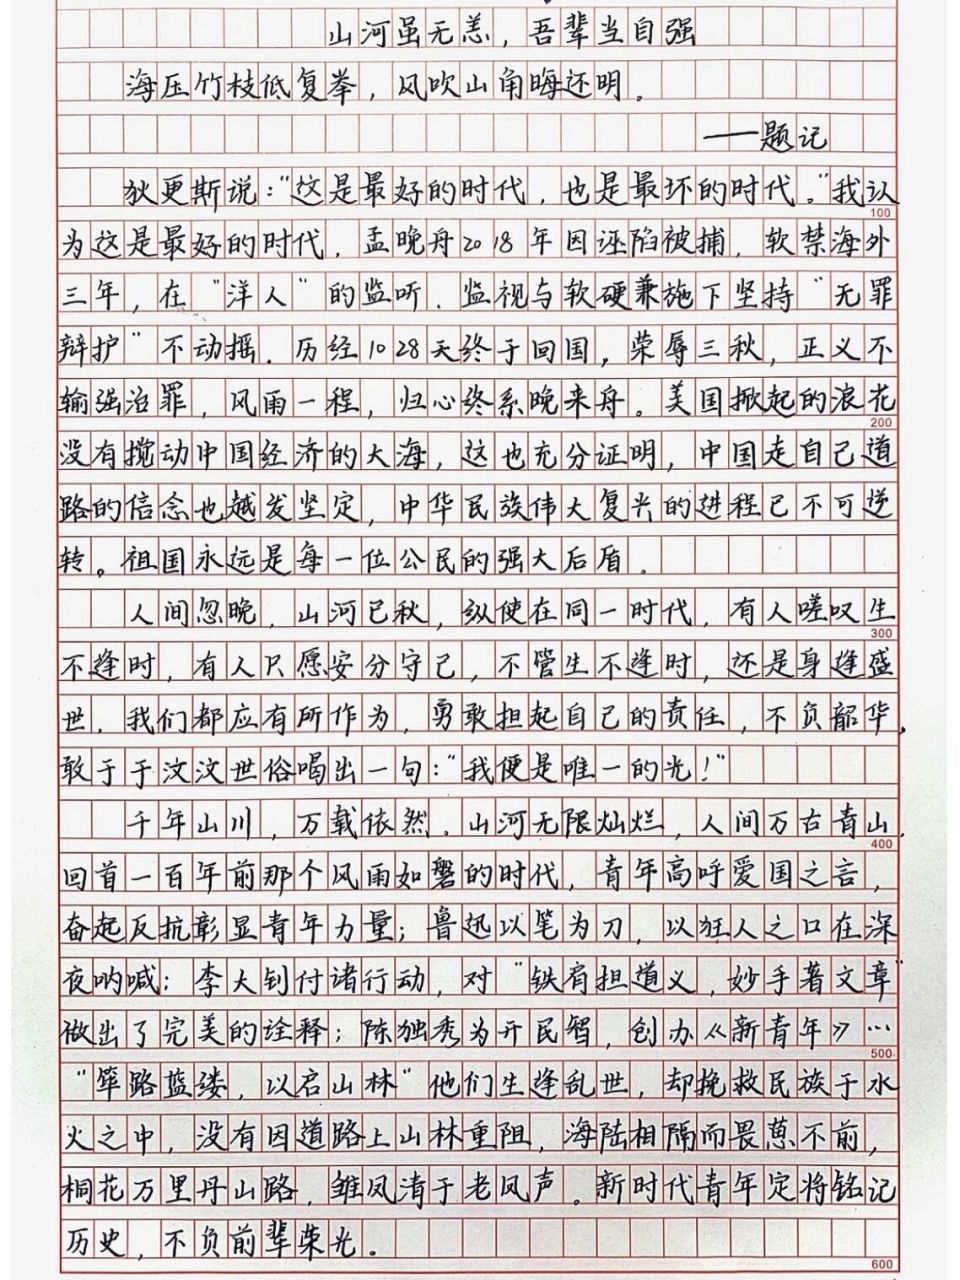 山河虽无恙，吾辈当自强
海压竹枝低复举，风吹山角晦还明。
——题记
狄更斯说：“这是最好的时代，也是最坏的时代。”我认
100
为这是最好的时代，孟晚舟2018年因诬陷被捕，软禁海外
三年，在“洋人”的监听、监视与软硬兼施下坚持“无罪
辩护”不动摇。历经1028天终于回国，荣辱三秋，正义不
输强治罪，风雨一程，归心终系晚来舟。美国掀起的浪花
200
没有搅动中国经济的大海，这也充分证明，中国走自己道
路的信念也越发坚定，中华民族伟大复兴的进程已不可逆
转。祖国永远是每一位公民的强大后盾。
人间忽晚，山河已秋，纵使在同一时代，有人嗟叹生
300
不逢时，有人只愿安分守己，不管生不逢时，还是身逢盛
世，我们都应有所作为，勇敢担起自己的责任，不负韶华，
敢于于汶汶世俗喝出一句：“我便是唯一的光！”
千年山川，万载依然。山河无限灿烂，人间万古青山，
400
回首一百年前那个风雨如磐的时代，青年高呼爱国之言，
奋起反抗彰显青年力量；鲁迅以笔为刀，以狂人之口在深
夜呐喊；李大钊付诸行动，对“铁肩担道义，妙手著文章”
做出了完美的诠释；陈独秀为开民智，创办《新青年》…
500
“筚路蓝缕，以启山林”他们生逢乱世，却挽救民族于水
火之中，没有因道路上山林重阻，海陆相隔而畏葸不前，
桐花万里丹山路，雏凤清于老凤声。新时代青年定将铭记
历史，不负前辈荣光。
600